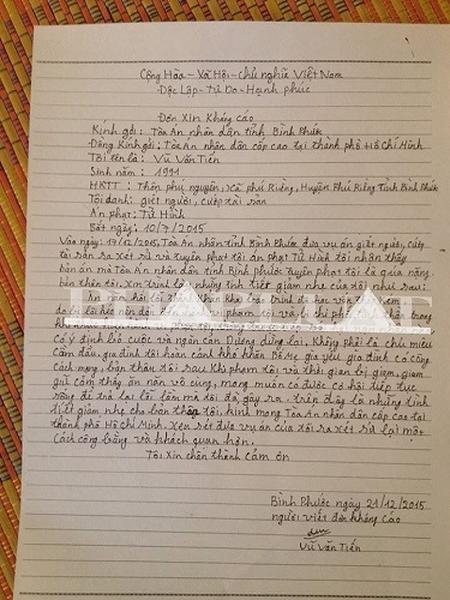 Cộng Hòa - Xã Hội - Chủ nghĩa Việt Nam
Độc Lập - Tự Do - Hạnh phúc
Đơn Xin Kháng Cáo
Kính gởi: Tòa Án nhân dân tỉnh Bình Phước
Đồng Kính gởi: Tòa Án nhân dân cấp cao tại thành phố Hồ Chí Minh
Tôi tên là: Vũ Văn Tiến
Sinh năm: 1991
HKTT: Thôn phú nguyên, xã phú Riềng, Huyện Phú Riềng Tỉnh Bình Phước
Tội danh: giết người, cướp tài sản
Án phạt: Tử Hình
Bắt ngày: 10/7/2015
Vào ngày: 17/12/2015, Tòa Án nhân dân tỉnh Bình Phước đưa vụ án giết người, cướp
tài sản ra xét sử và tuyên phạt tôi án phạt Tử Hình tôi nhận thấy
bản án mà Tòa Án nhân dân tỉnh Bình phước tuyên phạt tôi là quá nặng
bản thân tôi. Xin trình là những tình tiết giảm nhẹ của tôi như sau:
có ý định bỏ cuộc và ngăn cản Dương dừng lại. Không phải là chủ mưu
Cầm đầu, gia đình tôi hoàn cảnh khó khăn Bố Mẹ già yếu gia đình có công
Cách mạng, bản thân tôi sau khi phạm tội và thời gian bị giam, giam
giữ cảm thấy ăn năn vô cùng, mong muốn có được cơ hội tiếp tục
sống để trả lại lỗi lầm mà tôi đã gây ra. trên đây là những tình
tiết giảm nhẹ cho bản thân tôi, kính mong Tòa Án nhân dân cấp cao tại
thành phố Hồ Chí Minh. xem sét đưa vụ án của tôi ra xét sử lại một
Cách công bằng và khách quan hơn.
Tôi Xin chân thành cảm ơn
Bình Phước ngày 21/12/2015
người viết đơn kháng Cáo
Vũ Văn Tiến